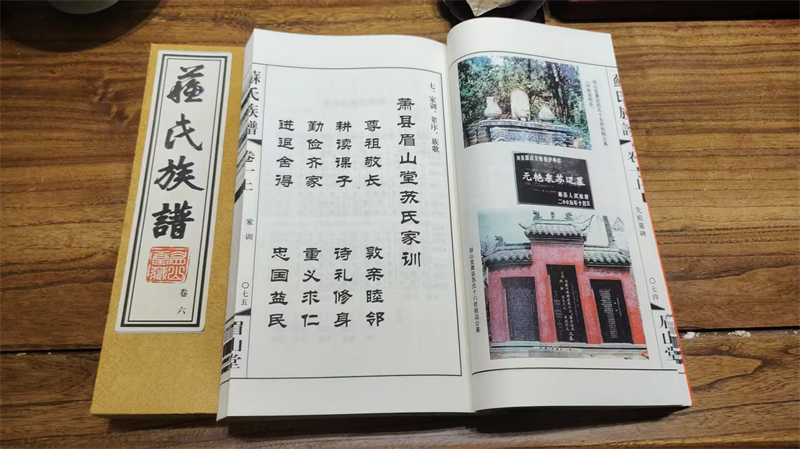 蘇氏族譜
卷六
蘇氏族譜
卷一上
家训
〇七五
眉山堂
七、家训、辈序、族歌
萧县眉山堂苏氏家训
尊祖敬长 敦亲睦邻
耕读课子 诗礼修身
勤俭齐家 重义求仁
进退舍得 忠国益民
无艳泉苏迈墓
萧县人民政府
蘇氏族譜
卷一上
先祖墓碑
〇七四
眉山堂